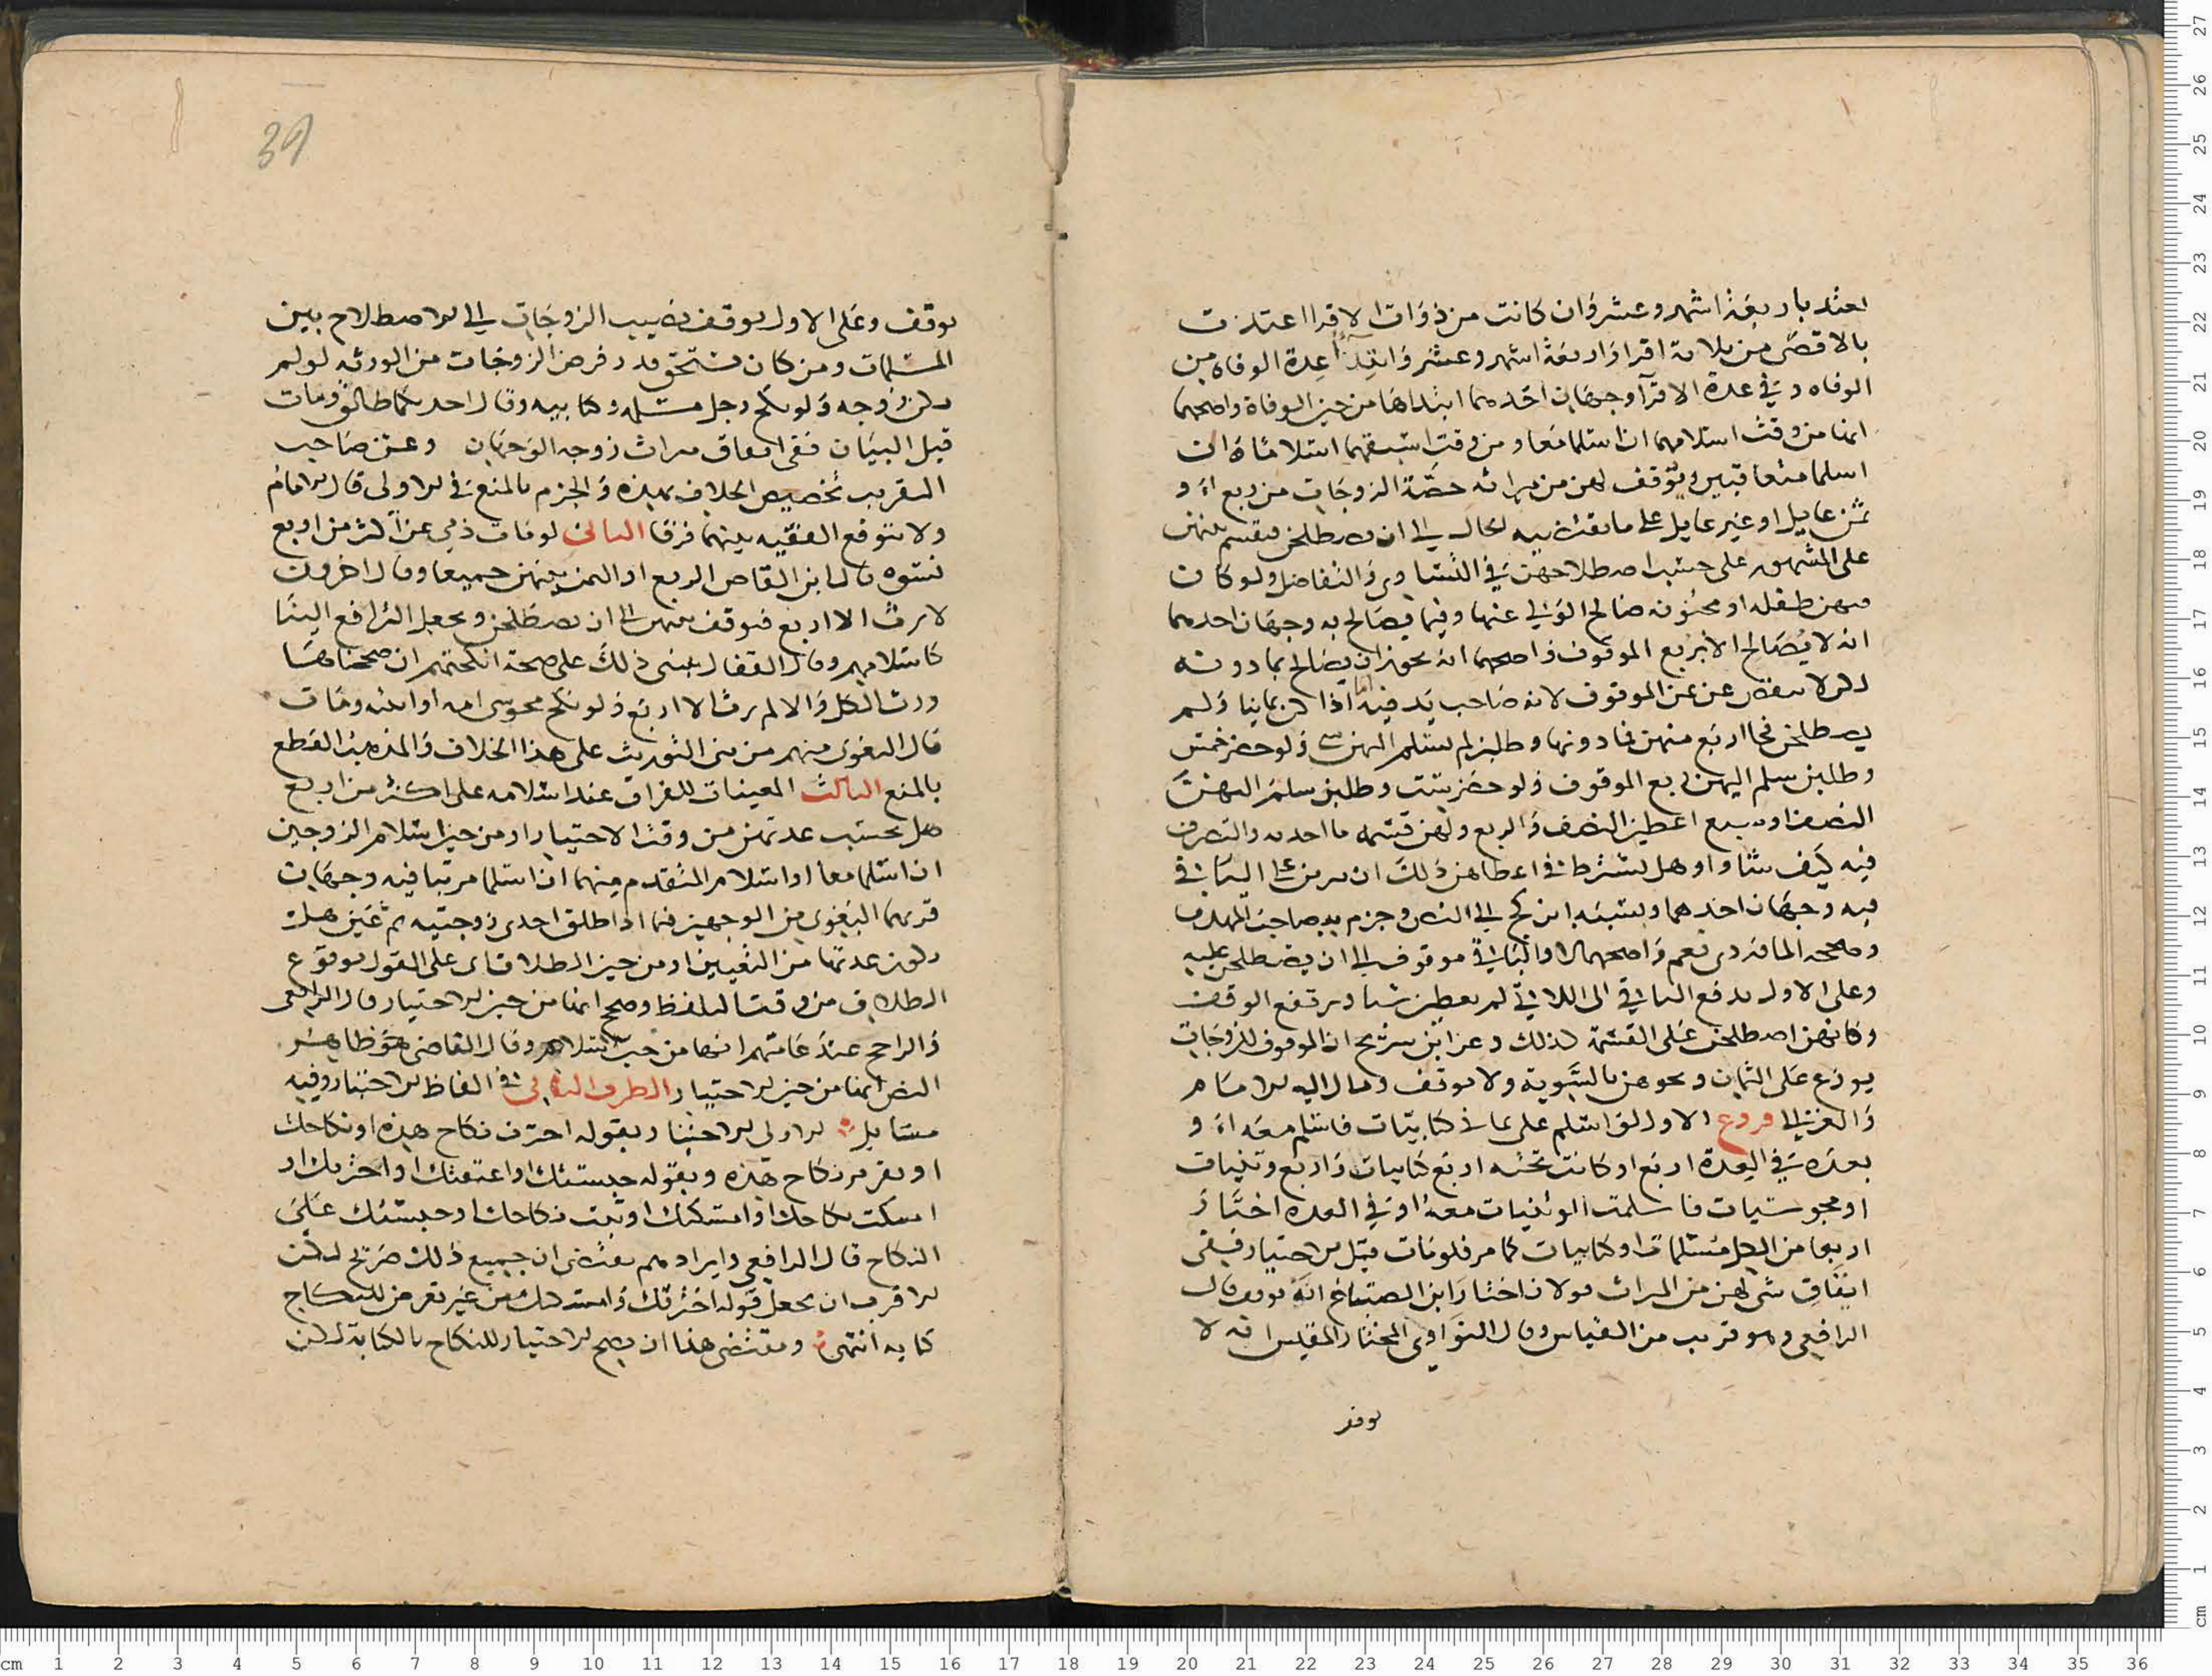 تعتد باربعة اشهر وعشر وان كانت من ذوات الاقرا اعتدت
بالاقصى من ثلاثة اقرا واربعة اشهر وعشر وابتدآء عدة الوفاة من
الوفاه وفي عدة الاقرآ وجهان احدهما ابتداها من حين الوفاة واصحهما
انها من وقت اسلامهما ان اسلما معا ومن وقت اسبقهما اسلاما ان
اسلما متعاقبين ويوقف لهن من ميراثه حصة الزوجات من ربع او
ثمن عايل او غير عايل على ما يقتضيه الحال الى ان يصطلحن فيقسم بينهن
على المشهور على حسب اصطلاحهن في التساوي والتفاضل ولو كان
فيهن طفله او مجنونه صالح الولي عنها وفيما يصالح به وجهان احدهما
انه لا يصالح الا بربع الموقوف واصحهما انه يجوز ان يصالح بما دونه
لكن لا ينقص عن ثمن الموقوف لانه صاحب يد فيه اما اذا كن ثمانيا ولم
يصطلحن فجا اربع منهن فما دونها وطلبن لم يسلم اليهن شي ولو حضر خمس
وطلبن سلم اليهن ربع الموقوف ولو حضر ست وطلبن سلم اليهن
النصف او سبع اعطين النصف والربع ولهن قسمه ما اخذنه والتصرف
فيه كيف شاوا وهل يشترط في اعطاهن ذلك ان يبرين عن الباقي
فيه وجهان احدهما وينسبه ابن كج الى النص وجزم به صاحب المهذب
وصححه الماوردي نعم واصحهما لا والباقي موقوف الى ان يصطلحن عليه
وعلى الاول يدفع الباقي الى اللاتي لم يعطين شيا ويرتفع الوقف
وكانهن اصطلحن على القسمة كذلك وعن ابن سريج ان الموقوف للزوجات
يوزع على الثمان ونحوهن بالسوية ولا يوقف ومال اليه الامام
والغزالي فروع الاول لو اسلم على ثماني كتابيات فاسلم معه او
بعده في العدة اربع او كانت تحته اربع كتابيات واربع وثنيات
او مجوسيات فاسلمت الوثنيات معه او في العده اختار
اربعا من الكل مسلمات او كتابيات كما مر فلو مات قبل الاختيار ففي
ايقاف شي لهن من الميراث قولان اختار ابن الصباغ انه يوقف قال
الرافعي وهو قريب من القياس وقال النواوي المختار المقيس انه لا
يوقف
39
يوقف وعلى الاول يوقف نصيب الزوجات الى الاصطلاح بين
المسلمات ومن كان يستحق قدر فرض الزوجات من الورثه لو لم
تكن زوجه ولو نكح رجل مسلمه وكتابيه وقال احديكما طالق ومات
قبل البيان ففي ايقاف ميراث زوجه الوجهان وعن صاحب
التقريب تخصيص الخلاف بهذه والجزم بالمنع في الاولى قال الامام
ولا يتوقع الفقيه بينهما فرقا الثاني لو مات ذمي عن اكثر من اربع
نسوه قال ابن القاص الربع او الثمن بينهن جميعا وقال اخرون
لا يرث الا اربع فيوقف بينهن الى ان يصطلحن ويجعل الترافع الينا
كاسلامهم وقال القفال يبنى ذلك على صحة انكحتهم ان صححناها
ورث الكل والا لم يرث الا اربع ولو نكح مجوسي امه او ابنته ومات
قال البغوي منهم من بنى التوريث على هذا الخلاف والمذهب القطع
بالمنع الثالث المعينات للفراق عند اسلامه على اكثر من اربع
هل تحسب عدتهن من وقت الاختيار او من حين اسلام الزوجين
ان اسلما معا او اسلام المتقدم منهما ان اسلما مرتبا فيه وجهان
قربهما البغوي من الوجهين فيما اذا طلق احدى زوجتيه ثم عين هل
تكون عدتها من التعيين او من حين الطلاق اى على القول بوقوع
الطلاق من وقت التلفظ وصحح انها من حين الاختيار وقال الرافعي
والراجح عند عامتهم انها من حين اسلامهم وقال القاضي هو ظاهر
النص انها من حين الاختيار الطرف الثاني في الفاظ الاختيار وفيه
مسايل الاولى الاختيار بقوله اخترت نكاح هذه او نكاحك
او تقرير نكاح هذه وبقوله حبستك او اعتقتك او اخترتك او
امسكت نكاحك او امسكتك او ثبت نكاحك او حبستك على
النكاح قال الرافعي وايرادهم يقتضي ان جميع ذلك صريح لكن
الاقرب ان يجعل قوله اخترتك وامسكتك من غير تعرض للنكاح
كنايه انتهى ومقتضى هذا ان يصح الاختيار للنكاح بالكناية لكن